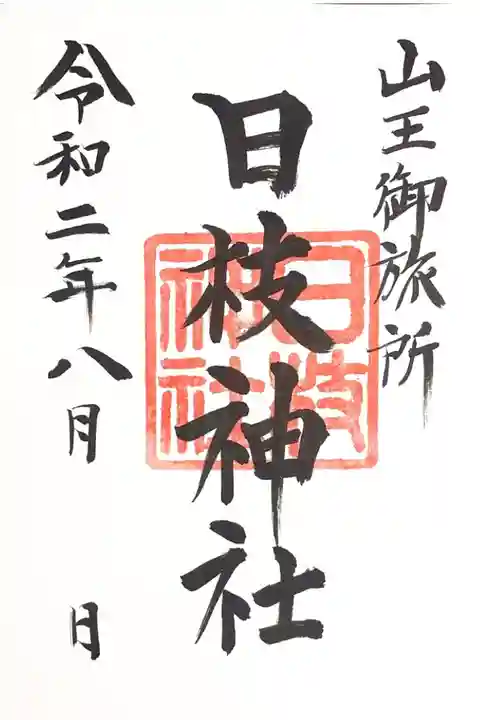 山王御旅所
日枝神社
日枝
神社
令和二年八月　日